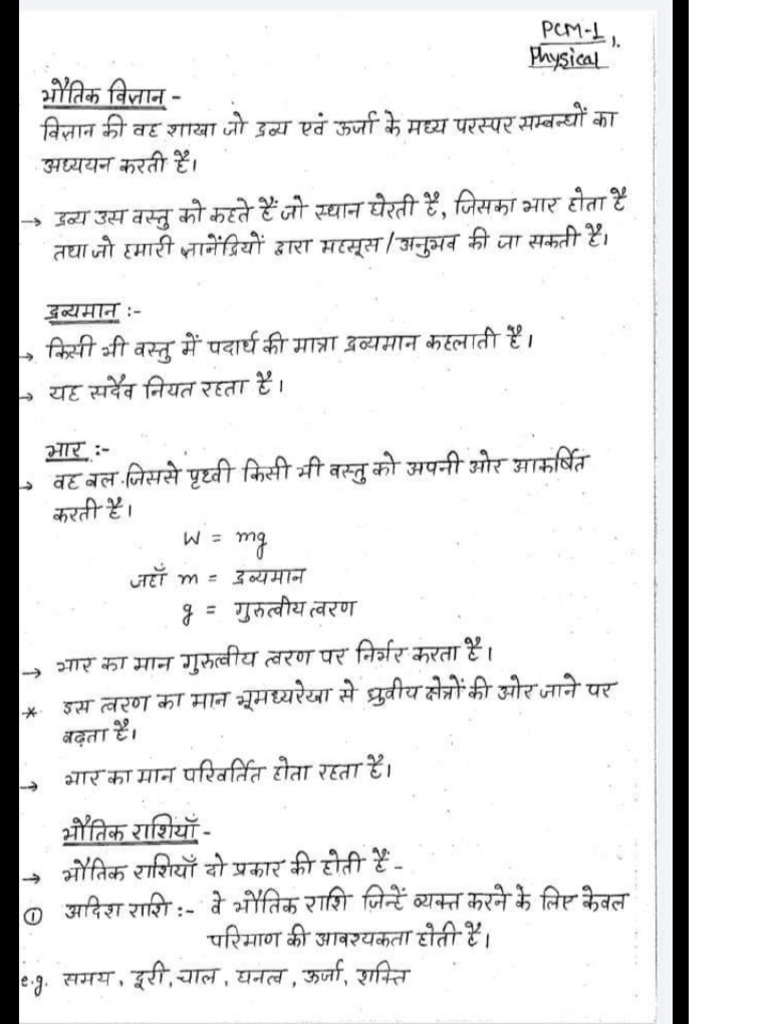 PCM-1
Physical 1.
भौतिक विज्ञान -
विज्ञान की वह शाखा जो द्रव्य एवं ऊर्जा के मध्य परस्पर सम्बन्धों का
अध्ययन करती है।
→ द्रव्य उस वस्तु को कहते हैं जो स्थान घेरती है, जिसका भार होता है
तथा जो हमारी ज्ञानेंद्रियों द्वारा महसूस/अनुभव की जा सकती है।
द्रव्यमान :-
→ किसी भी वस्तु में पदार्थ की मात्रा द्रव्यमान कहलाती है।
→ यह सदैव नियत रहता है।
भार :-
→ वह बल जिससे पृथ्वी किसी भी वस्तु को अपनी ओर आकर्षित
करती है।
W = mg
जहाँ m = द्रव्यमान
g = गुरुत्वीय त्वरण
→ भार का मान गुरुत्वीय त्वरण पर निर्भर करता है।
* इस त्वरण का मान भूमध्यरेखा से ध्रुवीय क्षेत्रों की ओर जाने पर
बढ़ता है।
→ भार का मान परिवर्तित होता रहता है।
भौतिक राशियाँ -
→ भौतिक राशियाँ दो प्रकार की होती हैं -
① अदिश राशि :- वे भौतिक राशि जिन्हें व्यक्त करने के लिए केवल
परिमाण की आवश्यकता होती है।
e.g. समय, दूरी, चाल, घनत्व, ऊर्जा, शक्ति